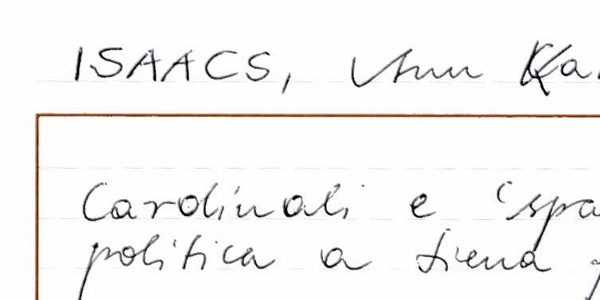 ISAACS, Ann Ka
Cardinali e 'spa
politica a siena